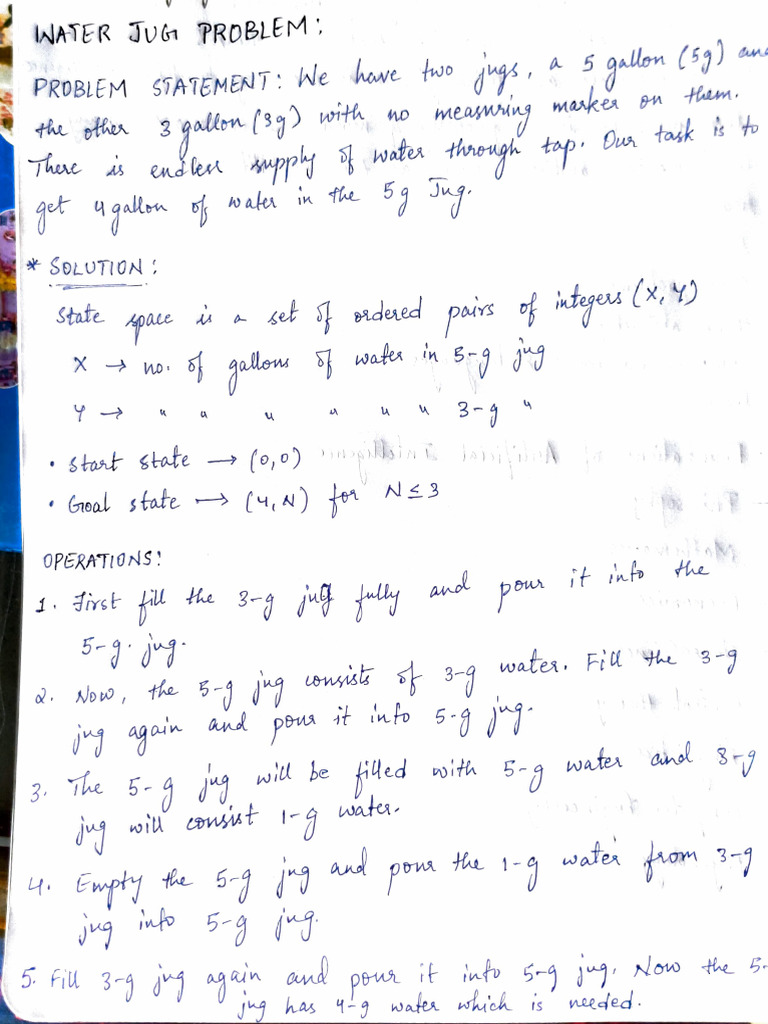 WATER JUG PROBLEM:
PROBLEM STATEMENT: We have two jugs, a 5 gallon (5g) and
the other 3 gallon (3g) with no measuring marker on them.
There is endless supply of water through tap. Our task is to
get 4 gallon of water in the 5g Jug.
* SOLUTION:
State space is a set of ordered pairs of integers (X, Y)
X → no. of gallons of water in 5-g jug
Y → " " " " " " 3-g "
• Start state → (0,0)
• Goal state → (4,N) for N≤3
OPERATIONS:
1. First fill the 3-g jug fully and pour it into the
5-g. jug.
2. Now, the 5-g jug consists of 3-g water. Fill the 3-g
jug again and pour it into 5-g jug.
3. The 5-g jug will be filled with 5-g water and 3-g
jug will consist 1-g water.
4. Empty the 5-g jug and pour the 1-g water from 3-g
jug into 5-g jug.
5. Fill 3-g jug again and pour it into 5-g jug. Now the 5-
jug has 4-g water which is needed.